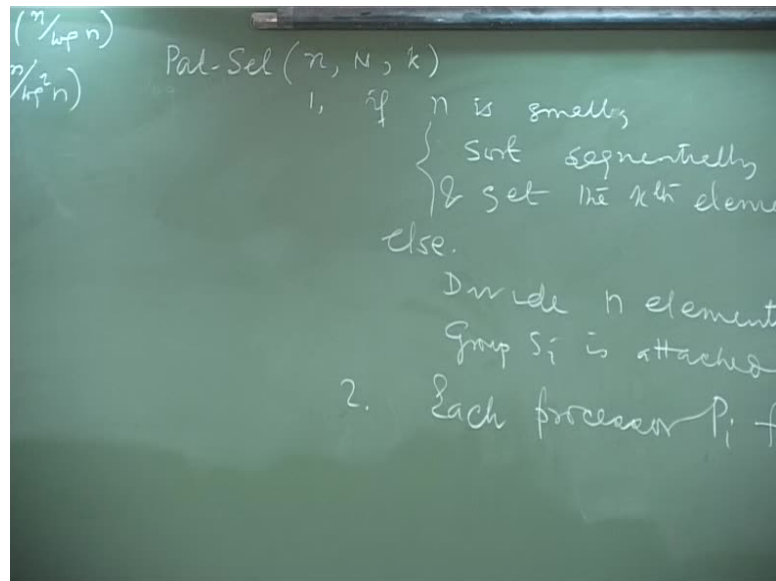 (n/log n)
n/log² n)
Pal-Sel (n, N, k)
1, if n is small,
{ Sort sequentially
& get the kth eleme
else.
Divide n element
Group Si is attached
2. Each processor Pi f